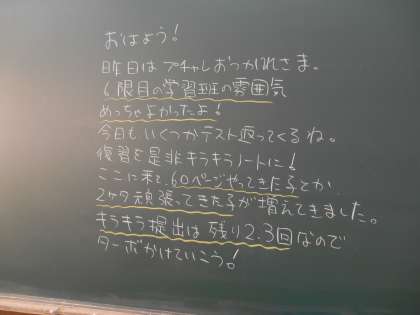 おはよう!
昨日はプチャレおつかれさま。
6限目の学習班の雰囲気
めっちゃよかったよ!
今日もいくつかテスト返ってくるね。
復習を是非キラキラノートに!
ここに来て、60ページやってきた子とか、
2ケタ頑張ってきた子が増えてきました。
キラキラ提出は残り2.3回なので
ターボかけていこう!